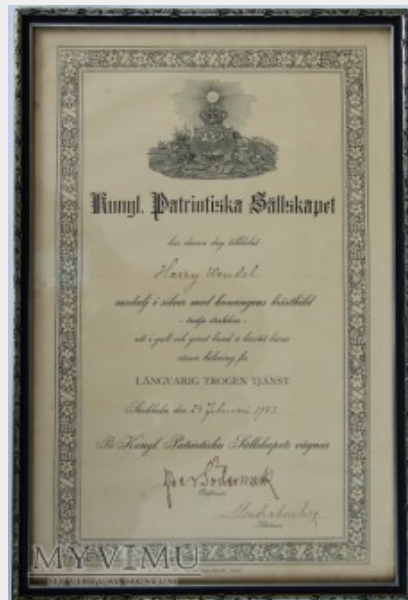 Kungl. Patriotiska Sällskapet
har denna dag tilldelat
Harry Wendel
medalj i silver med konungens bröstbild
- tredje storleken -
att i gult och grönt band å bröstet bäras
såsom belöning för
LÅNGVARIG TROGEN TJÄNST
Stockholm den 23 Februari 1943.
På Kungl. Patriotiska Sällskapets vägnar
MYVIMU
MY VIRTUAL MUSEUM